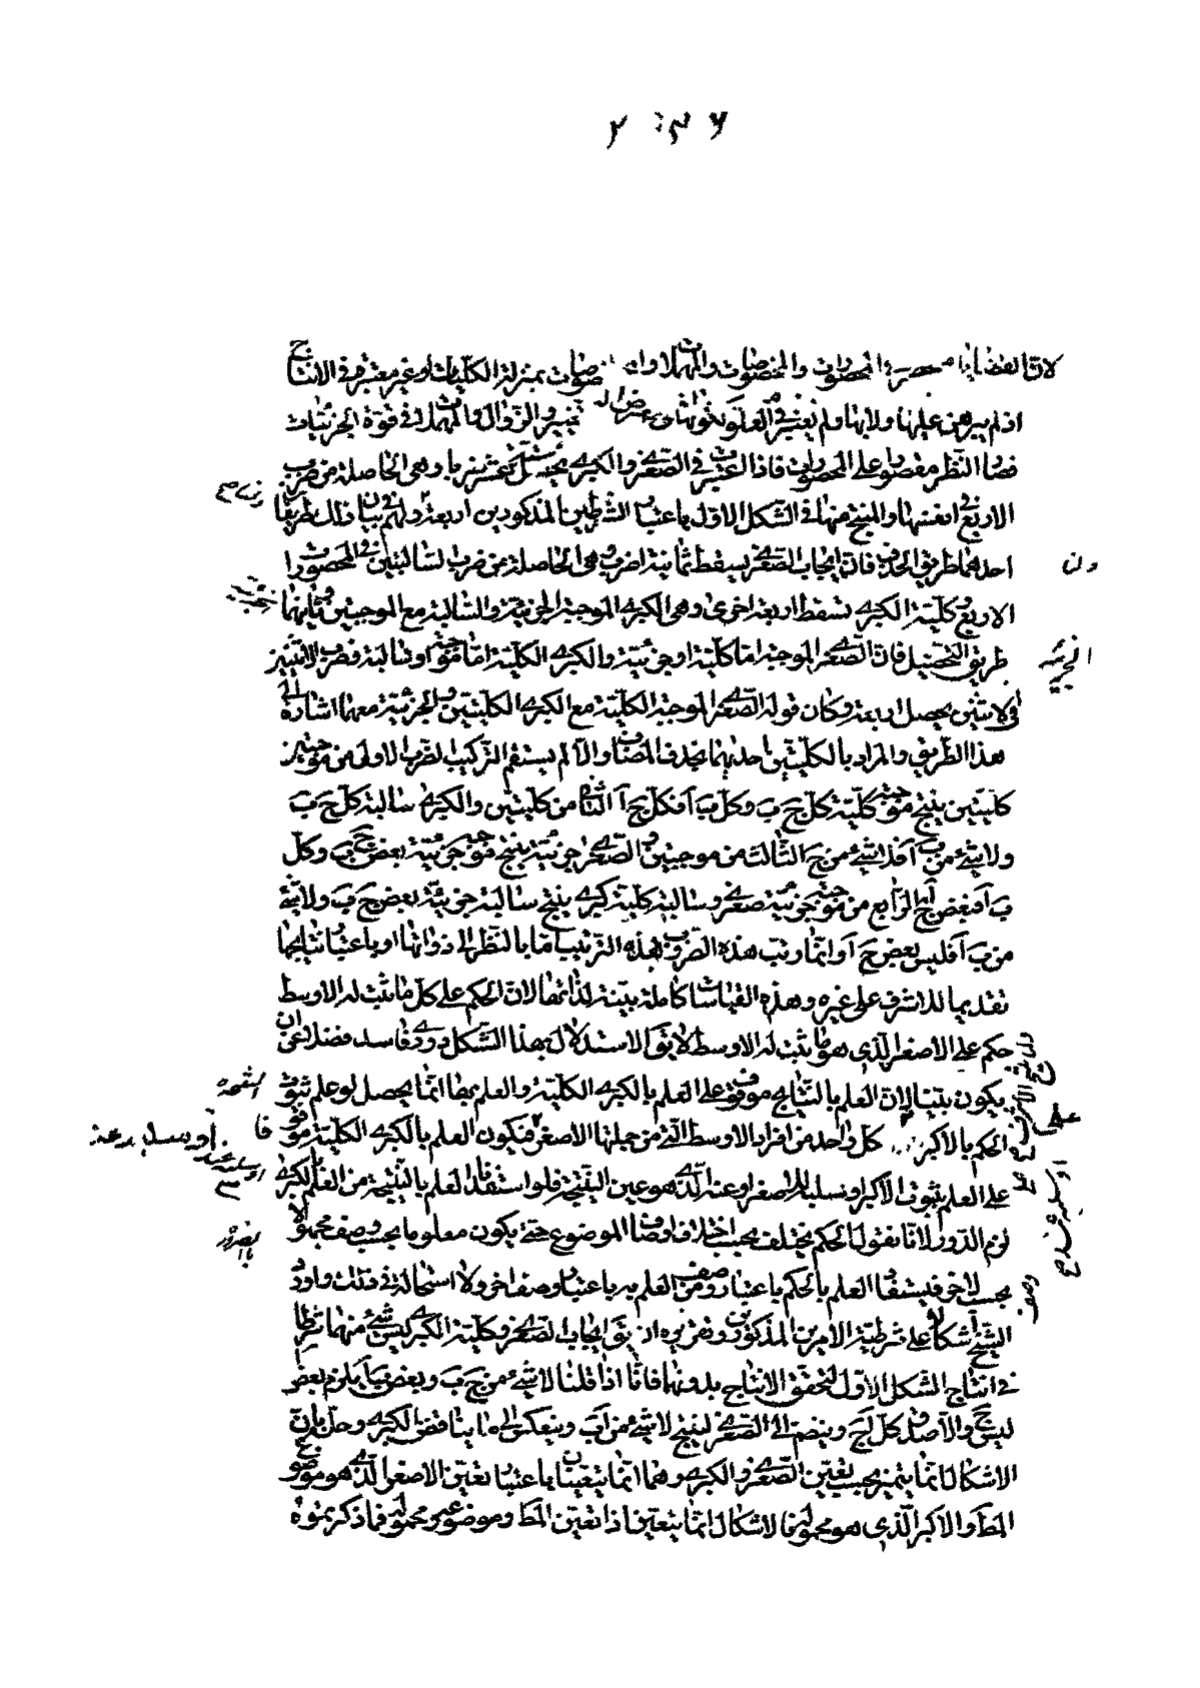 لان القضايا منحصرة في المحصورات والمخصوصات والمهملات والمخصوصات بمنزلة الكليات او غير معتبرة في الانتاج
اذ لم يبرهن عليها ولا بها ولم يعتبر في العلوم لكونها في معرض التغيير والزوال والمهملات في قوة الجزئيات
فصار النظر مقصورا على المحصورات فاذا اعتبرت في الصغرى والكبرى يحصل ستة عشر ضربا وهي الحاصلة من ضرب
الاربع في نفسها والمنتج منها في الشكل الاول باعتبار الشرطين المذكورين اربعة ولهم في بيان ذلك طريقان
احدهما طريق الحذف فان ايجاب الصغرى يسقط ثمانية اضرب هي الحاصلة من ضرب السالبتين في المحصورات
الاربع وكلية الكبرى تسقط اربعة اخرى وهي الكبرى الموجبة الجزئية والسالبة مع الموجبتين وثانيهما
طريق التحصيل فان الصغرى الموجبة اما كلية او جزئية والكبرى الكلية اما موجبة او سالبة وضرب الاثنين
في الاثنين يحصل اربعة وكان قوله الصغرى الموجبة الكلية مع الكبرى الكليتين والجزئية معهما اشارة الى
هذا الطريق والمراد بالكليتين احديهما بحذف المضاف والا لم يستقم التركيب الضرب الاول من موجبتين
كليتين ينتج موجبة كلية كل ج ب وكل ب ا فكل ج ا الثاني من كليتين والكبرى سالبة كل ج ب
ولا شيء من ب ا فلا شيء من ج ا الثالث من موجبتين والصغرى جزئية ينتج موجبة جزئية بعض ج ب وكل
ب ا فبعض ج ا الرابع من موجبة جزئية صغرى وسالبة كلية كبرى ينتج سالبة جزئية بعض ج ب ولا شيء
من ب ا فليس بعض ج ا وانما رتب هذه الضروب هذه الترتيب اما بالنظر الى ذواتها او باعتبار نتايجها
تقديما للاشرف على غيره وهذه القياسات كاملة بينة لذاتها لان الحكم على كل ما ثبت له الاوسط
حكم على الاصغر الذي هو مما ثبت له الاوسط لا يق الاستدلال بهذا الشكل دوري فاسد فضلا عن ان
يكون بينا لان العلم بالنتايج موقوف على العلم بالكبرى الكلية والعلم بها انما يحصل لو علم ثبوت
الحكم بالاكبر كل واحد من افراد الاوسط التي من جملتها الاصغر فيكون العلم بالكبرى الكلية موقوفا
على العلم بثبوت الاكبر او سلبه للاصغر او عنه الذي هو عين النتيجة فلو استفاد العلم بالنتيجة من العلم بالكبرى
لزم الدور لانا نقول الحكم يختلف بحسب اختلاف اوصاف الموضوع حتى يكون معلوما بحسب وصف مجهولا
بحسب اخر فيستفاد العلم بالحكم باعتبار وصف من العلم به باعتبار وصف اخر ولا استحالة في ذلك واورد
الشيخ اشكالا على شرطية الامرين المذكورين وتقريره ان يق ايجاب الصغرى وكلية الكبرى ليس شيء منهما شرطا
في انتاج الشكل الاول لتحقق الانتاج بدونهما فانا اذا قلنا لا شيء من ج ب وبعض ب ا يلزم بعض
ليس ج والا صدق كل ا ج وينضم الى الصغرى لينتج لا شيء من ا ب وينعكس الى ما يناقض الكبرى وحله بان
الاشكال انما يتميز بحسب تعين الصغرى والكبرى وهما انما يتعينان باعتبار تعين الاصغر الذي هو موضوع
المط والاكبر الذي هو محموله فالاشكال انما يتعين اذا تعين المط وموضوعه ومحموله فما ذكرتموه